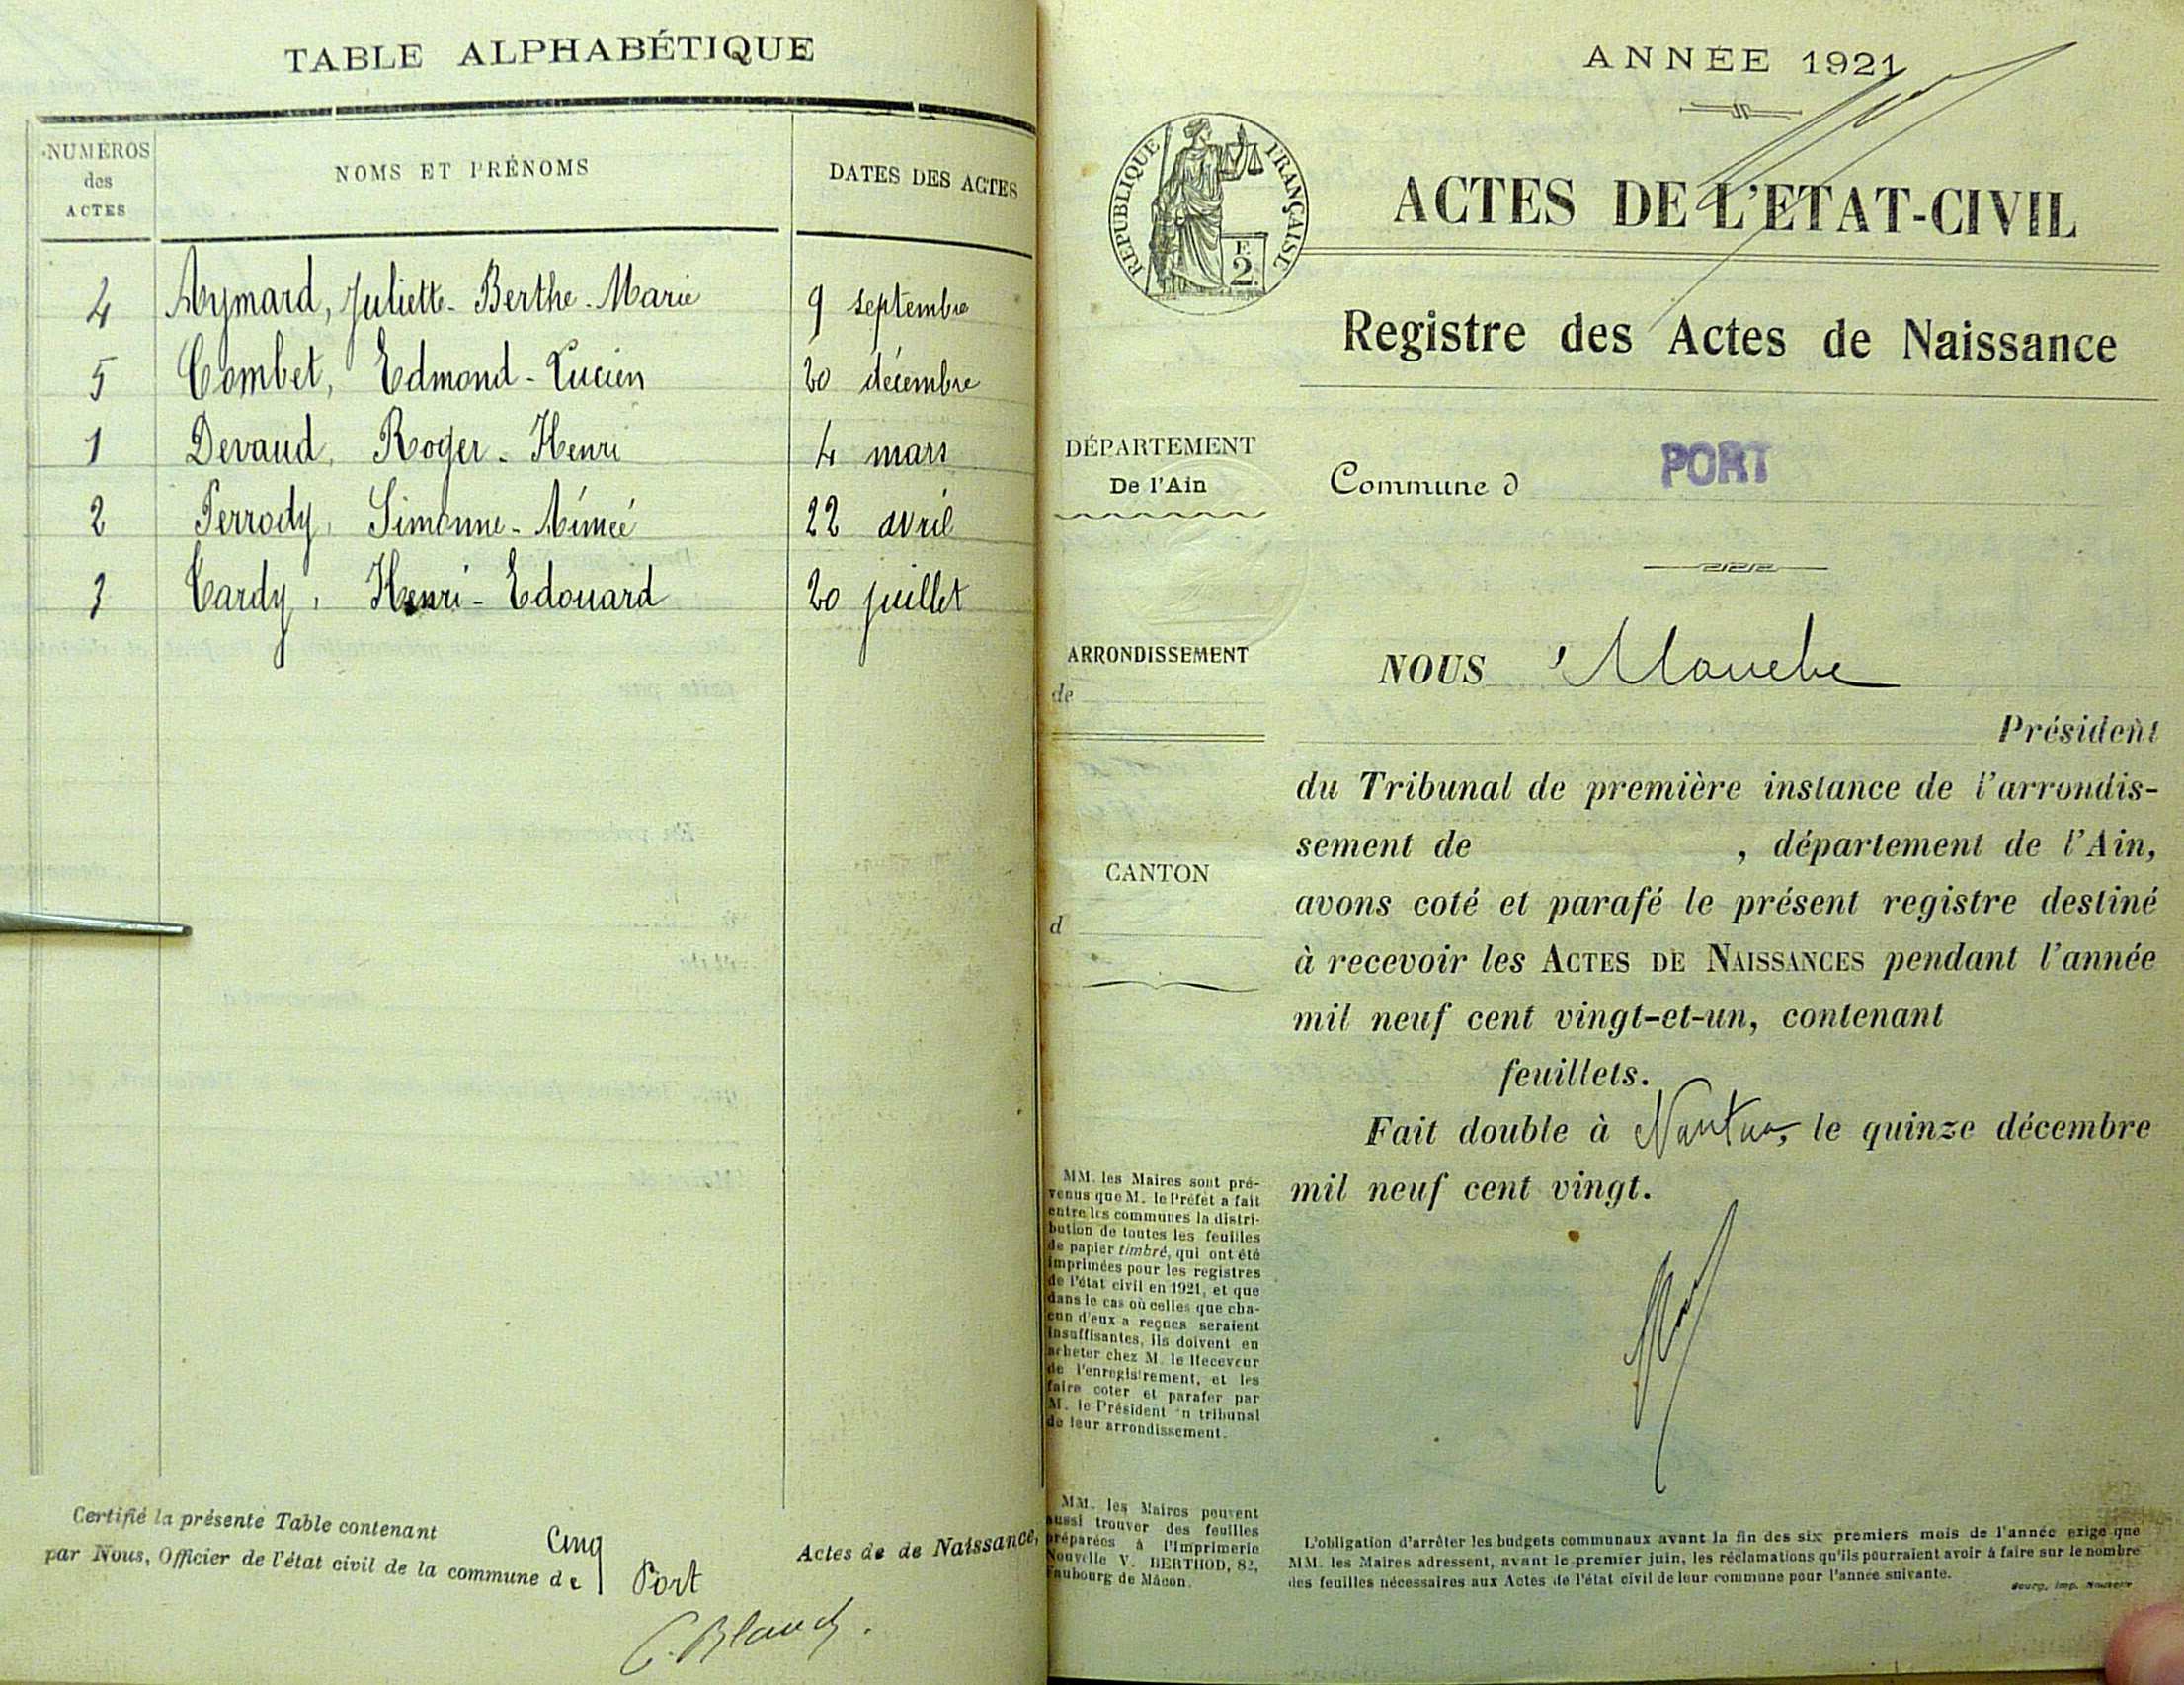 TABLE ALPHABÉTIQUE
NUMÉROS
des
ACTES
NOMS ET PRÉNOMS
DATES DES ACTES
4 Aymard, Juliette-Berthe-Marie 9 septembre
5 Combet, Edmond-Lucien 20 décembre
1 Devaud, Roger-Henri 4 mars
2 Perrody, Simonne-Aimée 22 avril
3 Tardy, Henri-Edouard 20 juillet
Certifié la présente Table contenant Cinq Actes de de Naissance,
par Nous, Officier de l'état civil de la commune de Port
C. Blanch.
ANNÉE 1921
RÉPUBLIQUE FRANÇAISE
F.
2.
ACTES DE L'ETAT-CIVIL
Registre des Actes de Naissance
DÉPARTEMENT
De l'Ain
Commune d PORT
ARRONDISSEMENT
de
CANTON
d
NOUS
Président
du Tribunal de première instance de l'arrondis-
sement de , département de l'Ain,
avons coté et parafé le présent registre destiné
à recevoir les ACTES DE NAISSANCES pendant l'année
mil neuf cent vingt-et-un, contenant
feuillets.
Fait double à Nantua, le quinze décembre
mil neuf cent vingt.
MM. les Maires sont pré-
venus que M. le Préfet a fait
entre les communes la distri-
bution de toutes les feuilles
de papier timbré, qui ont été
imprimées pour les registres
de l'état civil en 1921, et que
dans le cas où celles que cha-
cun d'eux a reçues seraient
insuffisantes, ils doivent en
acheter chez M. le Receveur
de l'enregistrement, et les
faire coter et parafer par
M. le Président n tribunal
de leur arrondissement.
MM. les Maires peuvent
aussi trouver des feuilles
préparées à l'Imprimerie
Nouvelle V. BERTHOD, 82,
Faubourg de Mâcon.
L'obligation d'arrêter les budgets communaux avant la fin des six premiers mois de l'année exige que
MM. les Maires adressent, avant le premier juin, les réclamations qu'ils pourraient avoir à faire sur le nombre
des feuilles nécessaires aux Actes de l'état civil de leur commune pour l'année suivante.
Bourg, Imp. Nouvelle